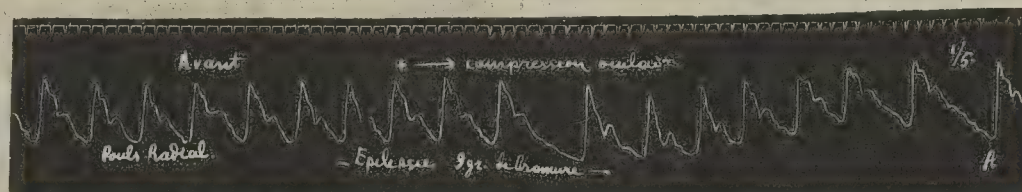 Avant
+ → compression oculaire
1/5
Pouls Radial
_ Epilepsie 9gr. de bromure _
R